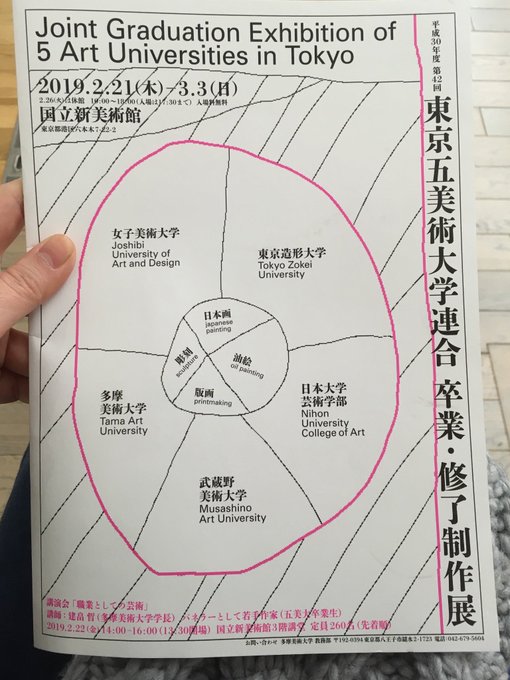 Joint Graduation Exhibition of
5 Art Universities in Tokyo
2019.2.21(木)–3.3(日)
2.26(火)は休館 10:00~18:00(入場は17:30まで) 入場料無料
国立新美術館
東京都港区六本木7-22-2
平成30年度 第42回
東京五美術大学連合 卒業・修了制作展
女子美術大学
Joshibi
University of
Art and Design
東京造形大学
Tokyo Zokei
University
日本画
japanese
painting
彫刻
sculpture
油絵
oil painting
版画
printmaking
多摩
美術大学
Tama Art
University
日本大学
芸術学部
Nihon
University
College of Art
武蔵野
美術大学
Musashino
Art University
講演会「職業としての芸術」
講師:建畠 晢(多摩美術大学学長) パネラーとして若手作家(五美大卒業生)
2019.2.22(金)14:00-16:00(13:30開場) 国立新美術館3階講堂 定員260名(先着順)
お問い合わせ 多摩美術大学 教務部 〒192-0394東京都八王子市鑓水2-1723 電話:042-679-5604